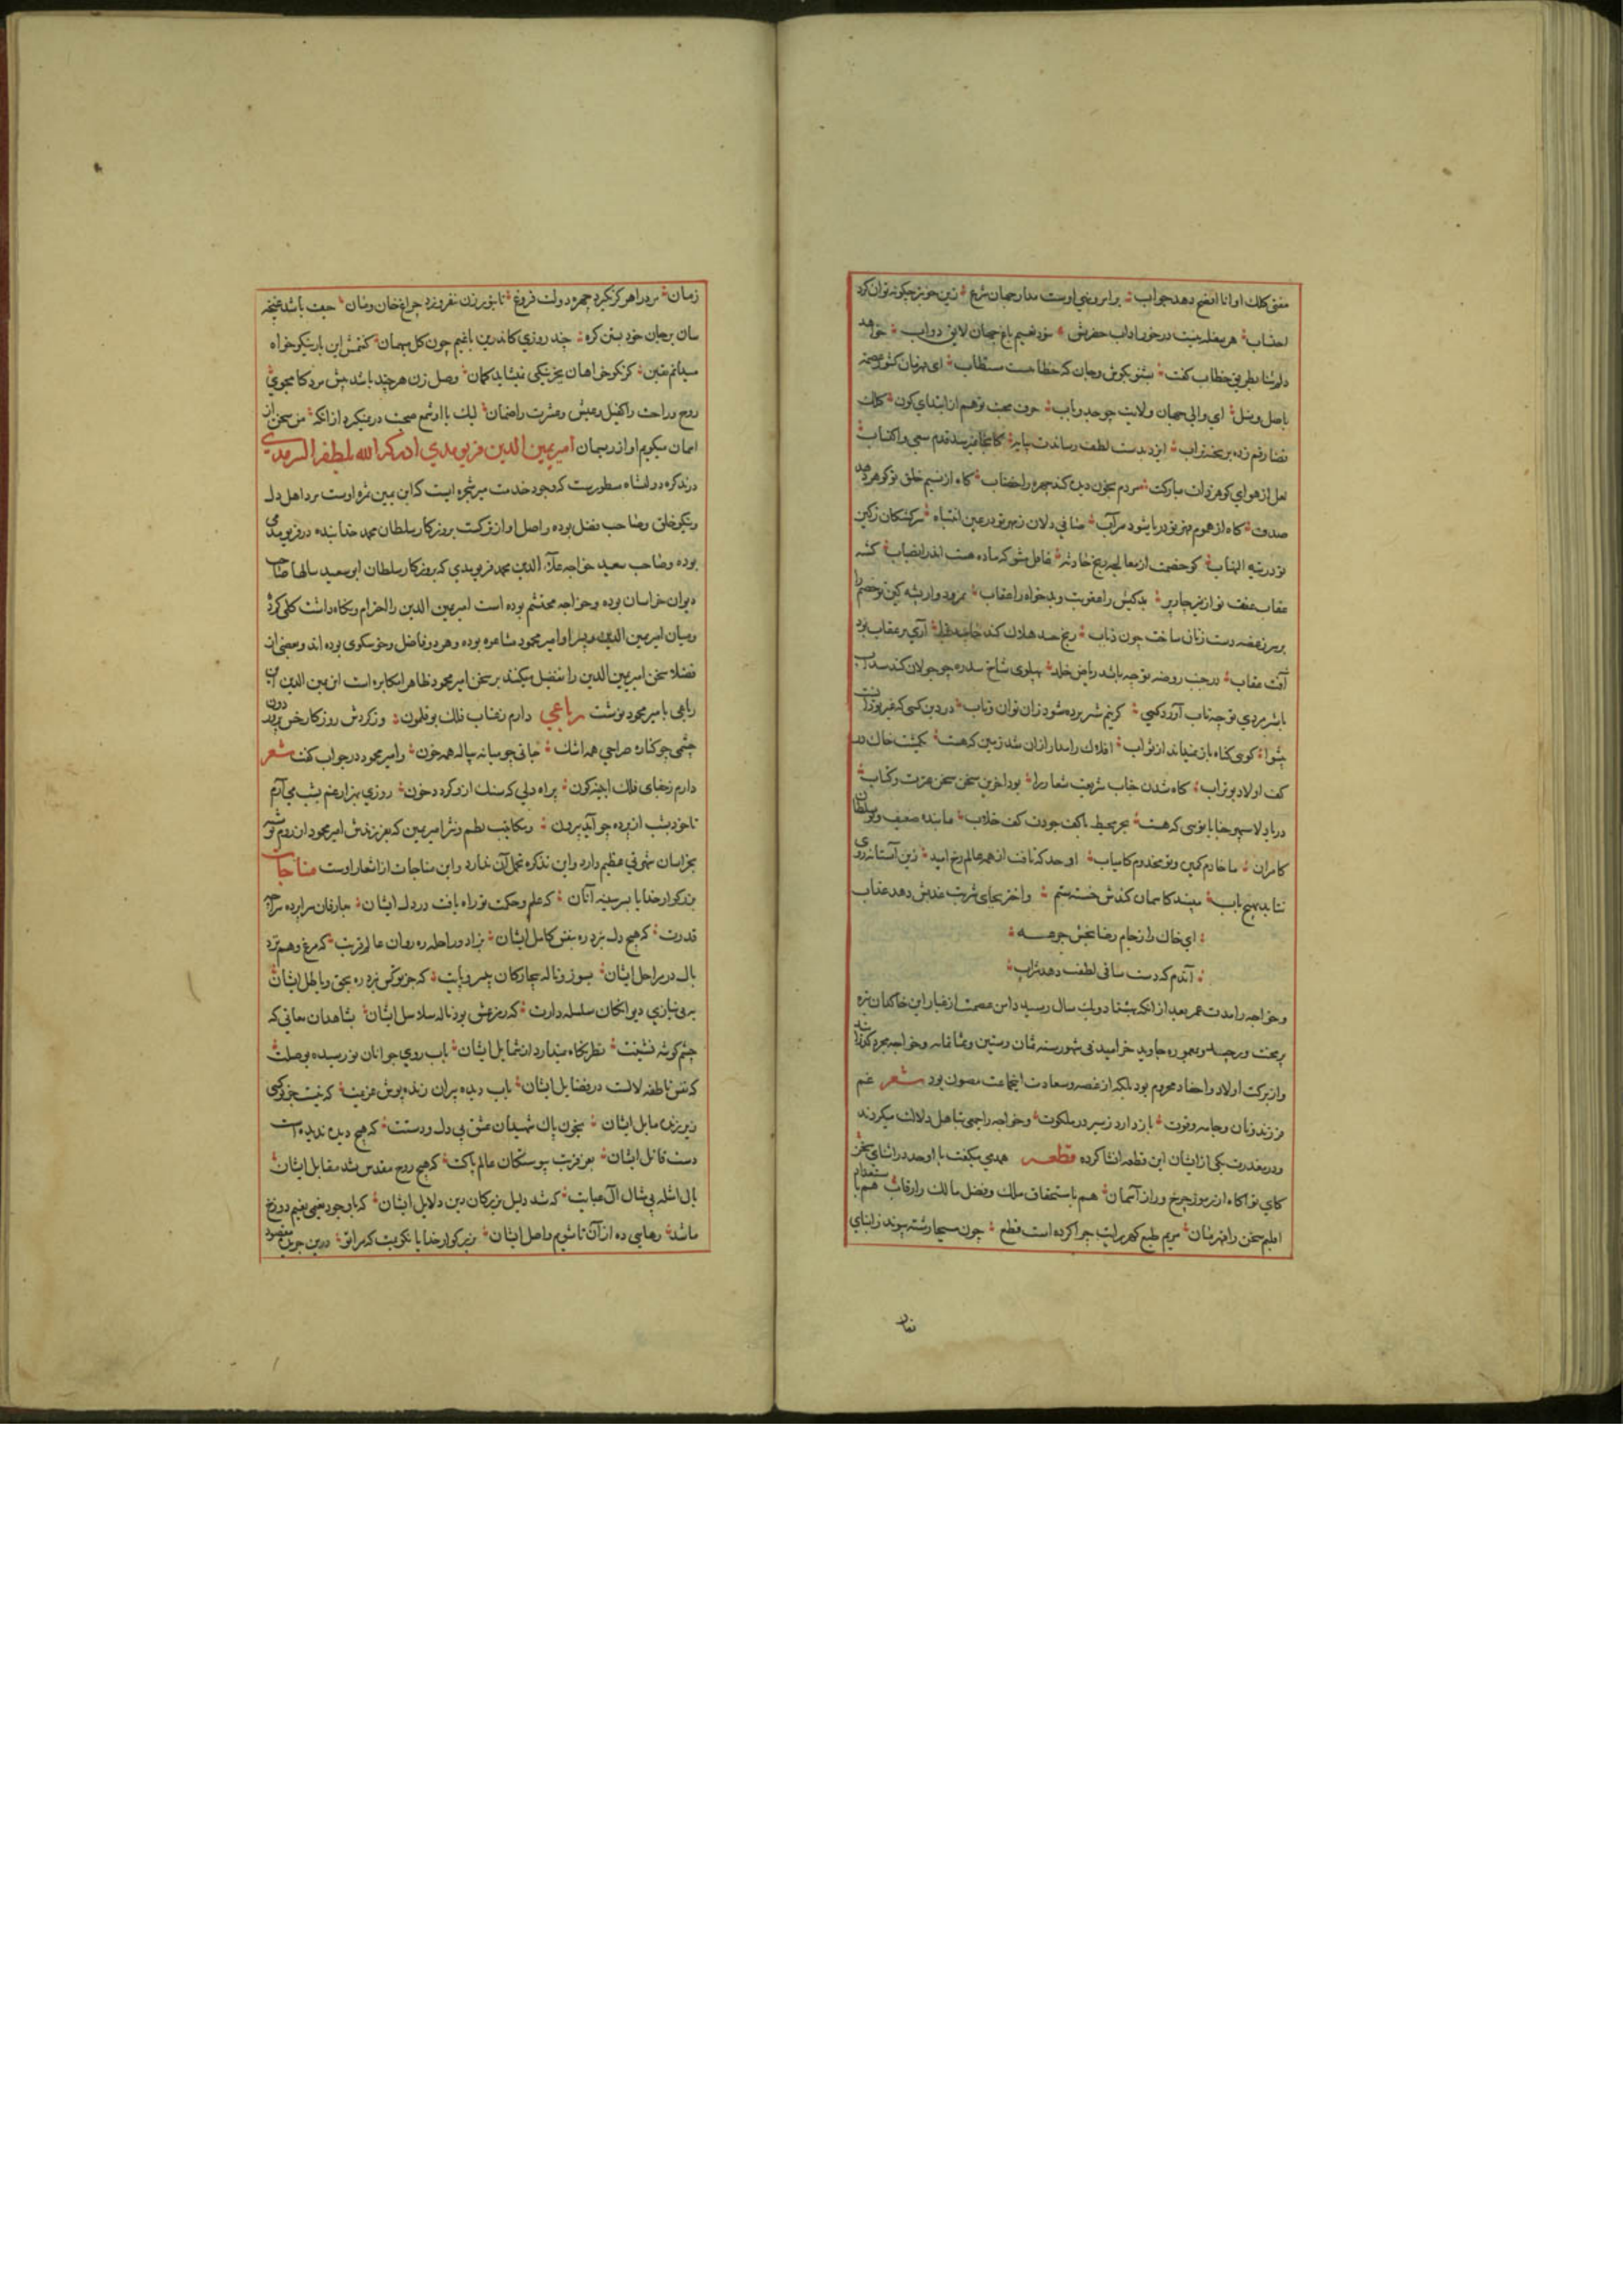 مفتی کلک او انا افصح دهد جواب بر ابروی اوست مدار جهان شرع زین خوبتر چگونه توان کرد
احتساب هر بیت در خور اداب حضرتش خود نعیم باغ جهان لایق دواب خواهد
دلم ثنا بطریق خطاب گفت بشنو بگوش وجان که خطابیست مستطاب ای قهرمان کشور
باصل ونسل ای والی جهان ولایت چو جد وباب حرف محبت توهم از ابتدای کون کلک
قضا رقم زده بر تخته تراب ایزد بدست لطف رساندت پایه کانجا نمیرسد قدم سعی واکتساب
لعل از هوای گوهر ذات مبارکت مردم بخون دیده کند چهره را خضاب گاه از نسیم خلق تو گوهر دهد
صدف گاه از هموم قهر تو دریا شود سراب
عقاب بدکیش را عقوبت وبدخواه را عقاب
بر سر زغصه دست زنان ساخت چون ذباب رنج حسد هلاک کند
آفت عقاب در جنب روضه تو چه باشد ریاض خلد پهلوی شاخ سدره چو جولان کند سداب
با شیر مردی تو چه تاب آورد کسی کز بیم شیر برده شود زان توان وتاب در دین کسی که غیر تو را
پیشوا گوی گناه باز نمیداند از ثواب افلاک را مدار ازان شد زمین که هست یکمشت خاک در
کف اولاد بوتراب گاه شدن جناب شریعت شعار را بود آخرین سخن سخن عزت وکتاب
دریا دلا سپهر جنابا تویی که هست بحر محیط با کف جودت کف خلاب ما بنده ضعیف وتو سلطان
کامران ما خادم کمین وتو مخدوم کامیاب اوحد که تافت از همه عالم رخ امید زین آستانه روی
نتابد بهیچ باب مپسند کاسمان کندش خسته ستم واختر بجای شربت عذبش دهد عذاب
ای خاک را ز جام رضا بخش جرعه
آندم که دست ساقی لطفت دهد شراب
وخواجه را مدت عمر بعد از انکه بهشتاد ویک سال رسید دامن عصمت از غبار این خاکدان تیره
در شهور سنه ثمان وستین وثمانمایه وخواجه مجرد گذران
واز برکت اولاد واحفاد محروم بود بلکه از غصه وسعادت این جماعت مصون بود شعر غم
فرزند ونان وجامه وقوت باز دارد ز سیر در ملکوت وخواجه را جمعی بتاهل دلالت میکردند
ودر معذرت یکی از ایشان این قطعه انشا کرده قطعه همدمی میگفت با اوحد در اثنای سخن
کای تو آگاه از رموز چرخ وراز آسمان هم باستحقاق ملک وفضل مالک را رقاب هم باستخدام
اقلیم سخن را قهرمان مریم طبع گهر زایت چرا کرده است قطع چون مسیحا رشته پیوند ز ابنای
زمان مرد را هرگز نگیرد چهره دولت فروغ تا بنور زن نفروزد چراغ خان ومان حیف باشد غنچه
سان بر جان خود بستن گره چند روزی کاندرین باغیم چون گل میهمان گفتمش ای یار نیکو خواه
میدانم یقین کز نکو خواهان بجز نیکی نشاید گمان وصل زن هر چند باشد پیش مرد کامجوی
روح وراحت را کفیل وعیش وعشرت را ضمان لیک با او شمع صحبت در نمیگیرد از انکه من سخن از
آسمان میگویم او از ریسمان امیر یمین الدین فریومدی
در تذکره دولتشاه مسطورست که وجود خدمت میر شجره ایست که ابن یمین ثمره اوست مرد اهل دل
ونیکو خلق وصاحب فضل بوده واصل او از ترکست بروزگار سلطان محمد خدابنده در فریومد می
بوده وصاحب سعید خواجه علاء الدین محمد فریومدی که بروزگار سلطان ابو سعید سالها صاحب
دیوان خراسان بوده وخواجه محتشم بوده است امیر یمین الدین را احترام ونگاه داشت کلی کردی
ومیان امیر یمین الدین وپسر او امیر محمود مشاعره بوده وهر دو فاضل وخوشگوی بوده اند وبعضی از
فضلا سخن امیر یمین الدین را تفضیل میکنند بر سخن امیر محمود ظاهرا مکابره است امیر یمین الدین این
رباعی بامیر محمود نوشت رباعی دارم ز عتاب فلک بوقلمون وز گردش روزگار خس پرور دون
چشمی چو کناره صراحی همه اشک جانی چو میانه پیاله همه خون وامیر محمود در جواب گفت شعر
دارم ز جفای فلک آینه گون پر آه دلی که سنگ ازو گردد خون روزی بهزار غم بشب می آرم
تا خود شب از پرده چه آید بیرون ومکاتیب نظم ونثر امیر یمین که بفرزندش امیر محمود از روم نوشته
بخراسان شهرتی عظیم دارد واین تذکره تحمل آن ندارد واین مناجات از اشعار اوست مناجات
بزرگوار خدایا بسینه آنان که علم وحکمت تو راه یافت در دل ایشان بعارفان سراپرده سراچه
قدرت که هیچ دل نبرد ره بنقش کامل ایشان بزاد وراحله رهروان عالم قربت که مرغ وهم نزد
بال در مراحل ایشان بسوز وناله بیچارگان بی سر وپایت که جز تو کس نبرد ره بحق وباطل ایشان
به بی نیازی دیوانگان سلسله دارت که رمز عشق بود ناله سلاسل ایشان بشاهدان معانی که
چشم گوشه نشینت نظر نگاه ندارد از شمایل ایشان بآب روی جوانان نو رسیده بوصلت
که نفس ناطقه لالست در فضایل ایشان بآب دیده پیران ژنده پوش عزیمت که نیست جز تو کسی
دیرین مایل ایشان بخون پاک شهیدان عشق بی دل ودستت که هیچ دیده ندیده است
دست قاتل ایشان بعز قربت پیوستگان عالم پاکت که هیچ روح مقدس نشد مقابل ایشان
بآل امثله بی مثال آل عبایت که شد دلیل بزرگان دین دلایل ایشان که با وجود نعیم مقیم دوزخ
ماشد رهایی ده از آن تا شویم واصل ایشان بزرگوار خدایا نگویمت که مرا تو درین جریده مقصود
نمار